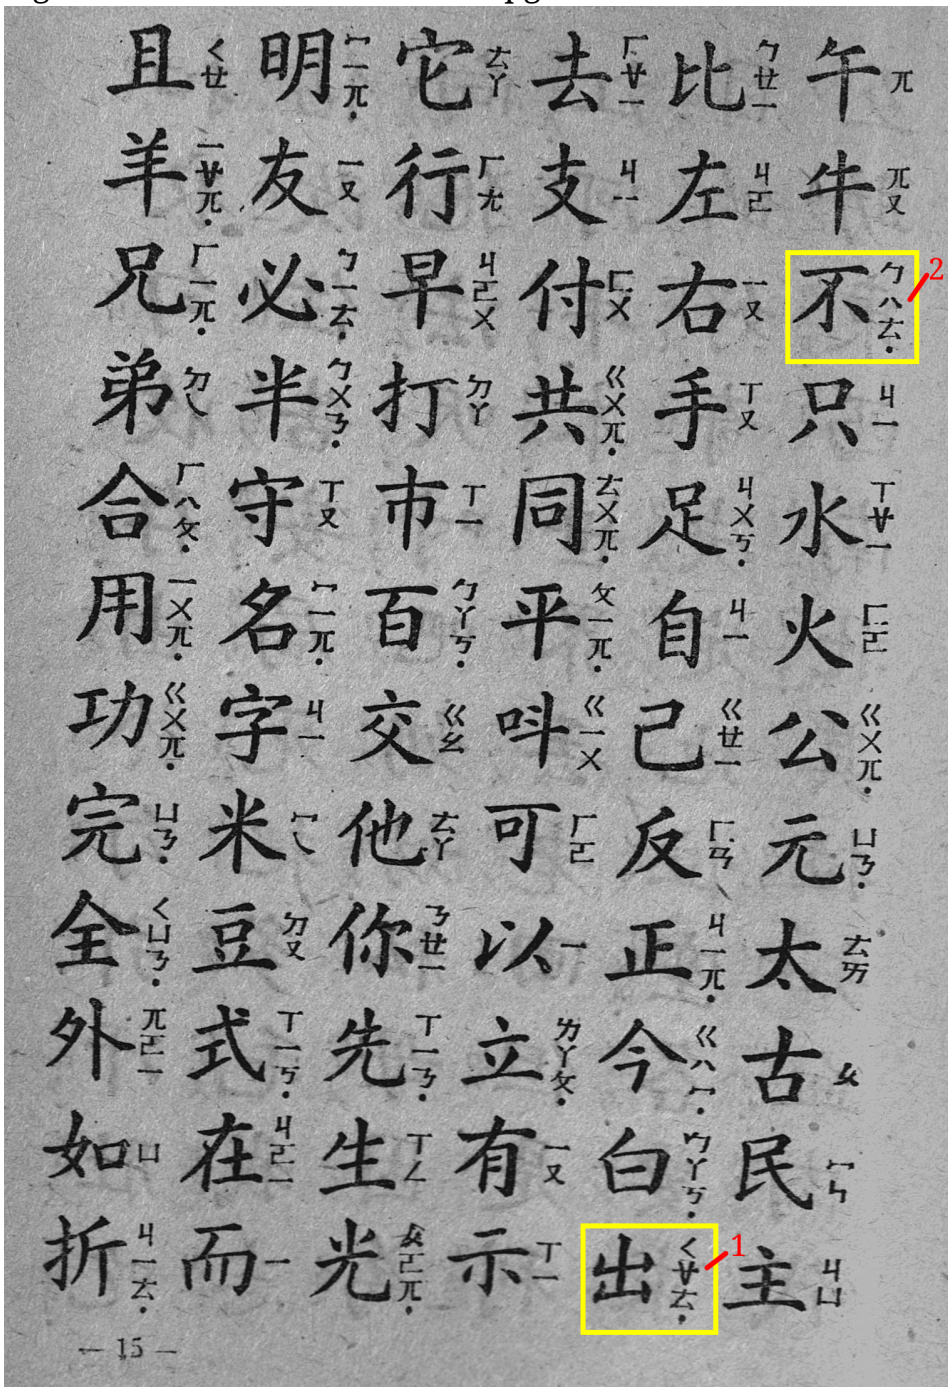 午ㄫ 牛ㄫㄡ 不ㄅㄟㄊ. 只ㄐㄧ 水ㄒㄓㄧ 火ㄈㄛ 公ㄍㄨㄫ. 元ㄩㄋ. 太ㄊㄞ 古ㄍㄨ 民ㄇㄣ 主ㄐㄩ
比ㄅㄝㄧ 左ㄐㄛ 右ㄧㄡ 手ㄒㄡ 足ㄐㄨㄎ. 自ㄐㄧ 己ㄍㄝㄧ 反ㄈㄢ 正ㄐㄧㄫ. 今ㄍㄟㄇ. 白ㄅㄚㄎ. 出ㄑㄓㄊ.
去ㄏㄓㄧ 支ㄐㄧ 付ㄈㄨ 共ㄍㄨㄫ. 同ㄊㄨㄫ. 平ㄆㄧㄫ. 呌ㄍㄧㄨ 可ㄏㄛ 以ㄧ 立ㄌㄚㄆ. 有ㄧㄡ 示ㄒㄧ
它ㄊㄚ 行ㄏㄤ 早ㄐㄛㄨ 打ㄉㄚ 市ㄒㄧ 百ㄅㄚㄎ. 交ㄍㄠ 他ㄊㄚ 你ㄋㄝㄧ 先ㄒㄧㄋ. 生ㄒㄥ 光ㄍㄛㄫ.
明ㄇㄧㄫ. 友ㄧㄡ 必ㄅㄧㄊ. 半ㄅㄨㄋ. 守ㄒㄡ 名ㄇㄧㄫ. 字ㄐㄧ 米ㄇㄟ 豆ㄉㄡ 式ㄒㄧㄎ. 在ㄐㄛㄧ 而ㄧ
且ㄑㄝ 羊ㄧㄓㄫ. 兄ㄏㄧㄫ. 弟ㄉㄟ 合ㄏㄟㄆ. 用ㄧㄨㄫ. 功ㄍㄨㄫ. 完ㄩㄋ. 全ㄑㄩㄋ. 外ㄫㄛㄧ 如ㄩ 折ㄐㄧㄊ.
— 15 —
2
1